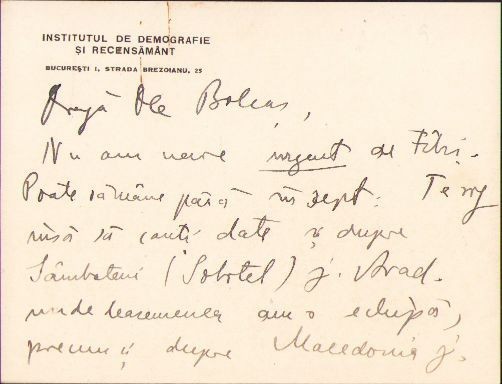 INSTITUTUL DE DEMOGRAFIE
ȘI RECENSĂMÂNT
BUCUREȘTI I, STRADA BREZOIANU, 23
Dragă Dle Bolcaș,
Nu am nevoe urgent de
Poate rămâne până în sept. Te rog
însă să cauți date și despre
Sâmbăteni (Sobotel) j. Arad.
unde deasemenea am o echipă,
precum și despre Macedonia j.